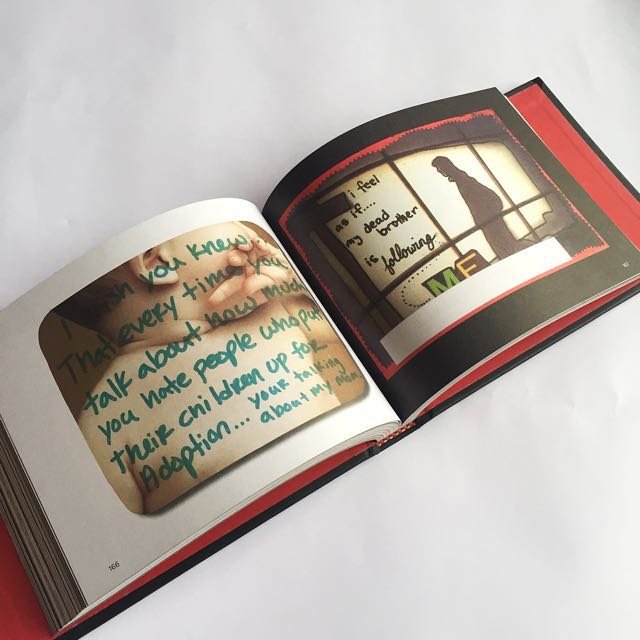 I wish you knew...
That every time you
talk about how much
you hate people who put
their children up for
Adoption... your talking
about my Mom
166
i feel
as if....
my dead
brother
is following
ME